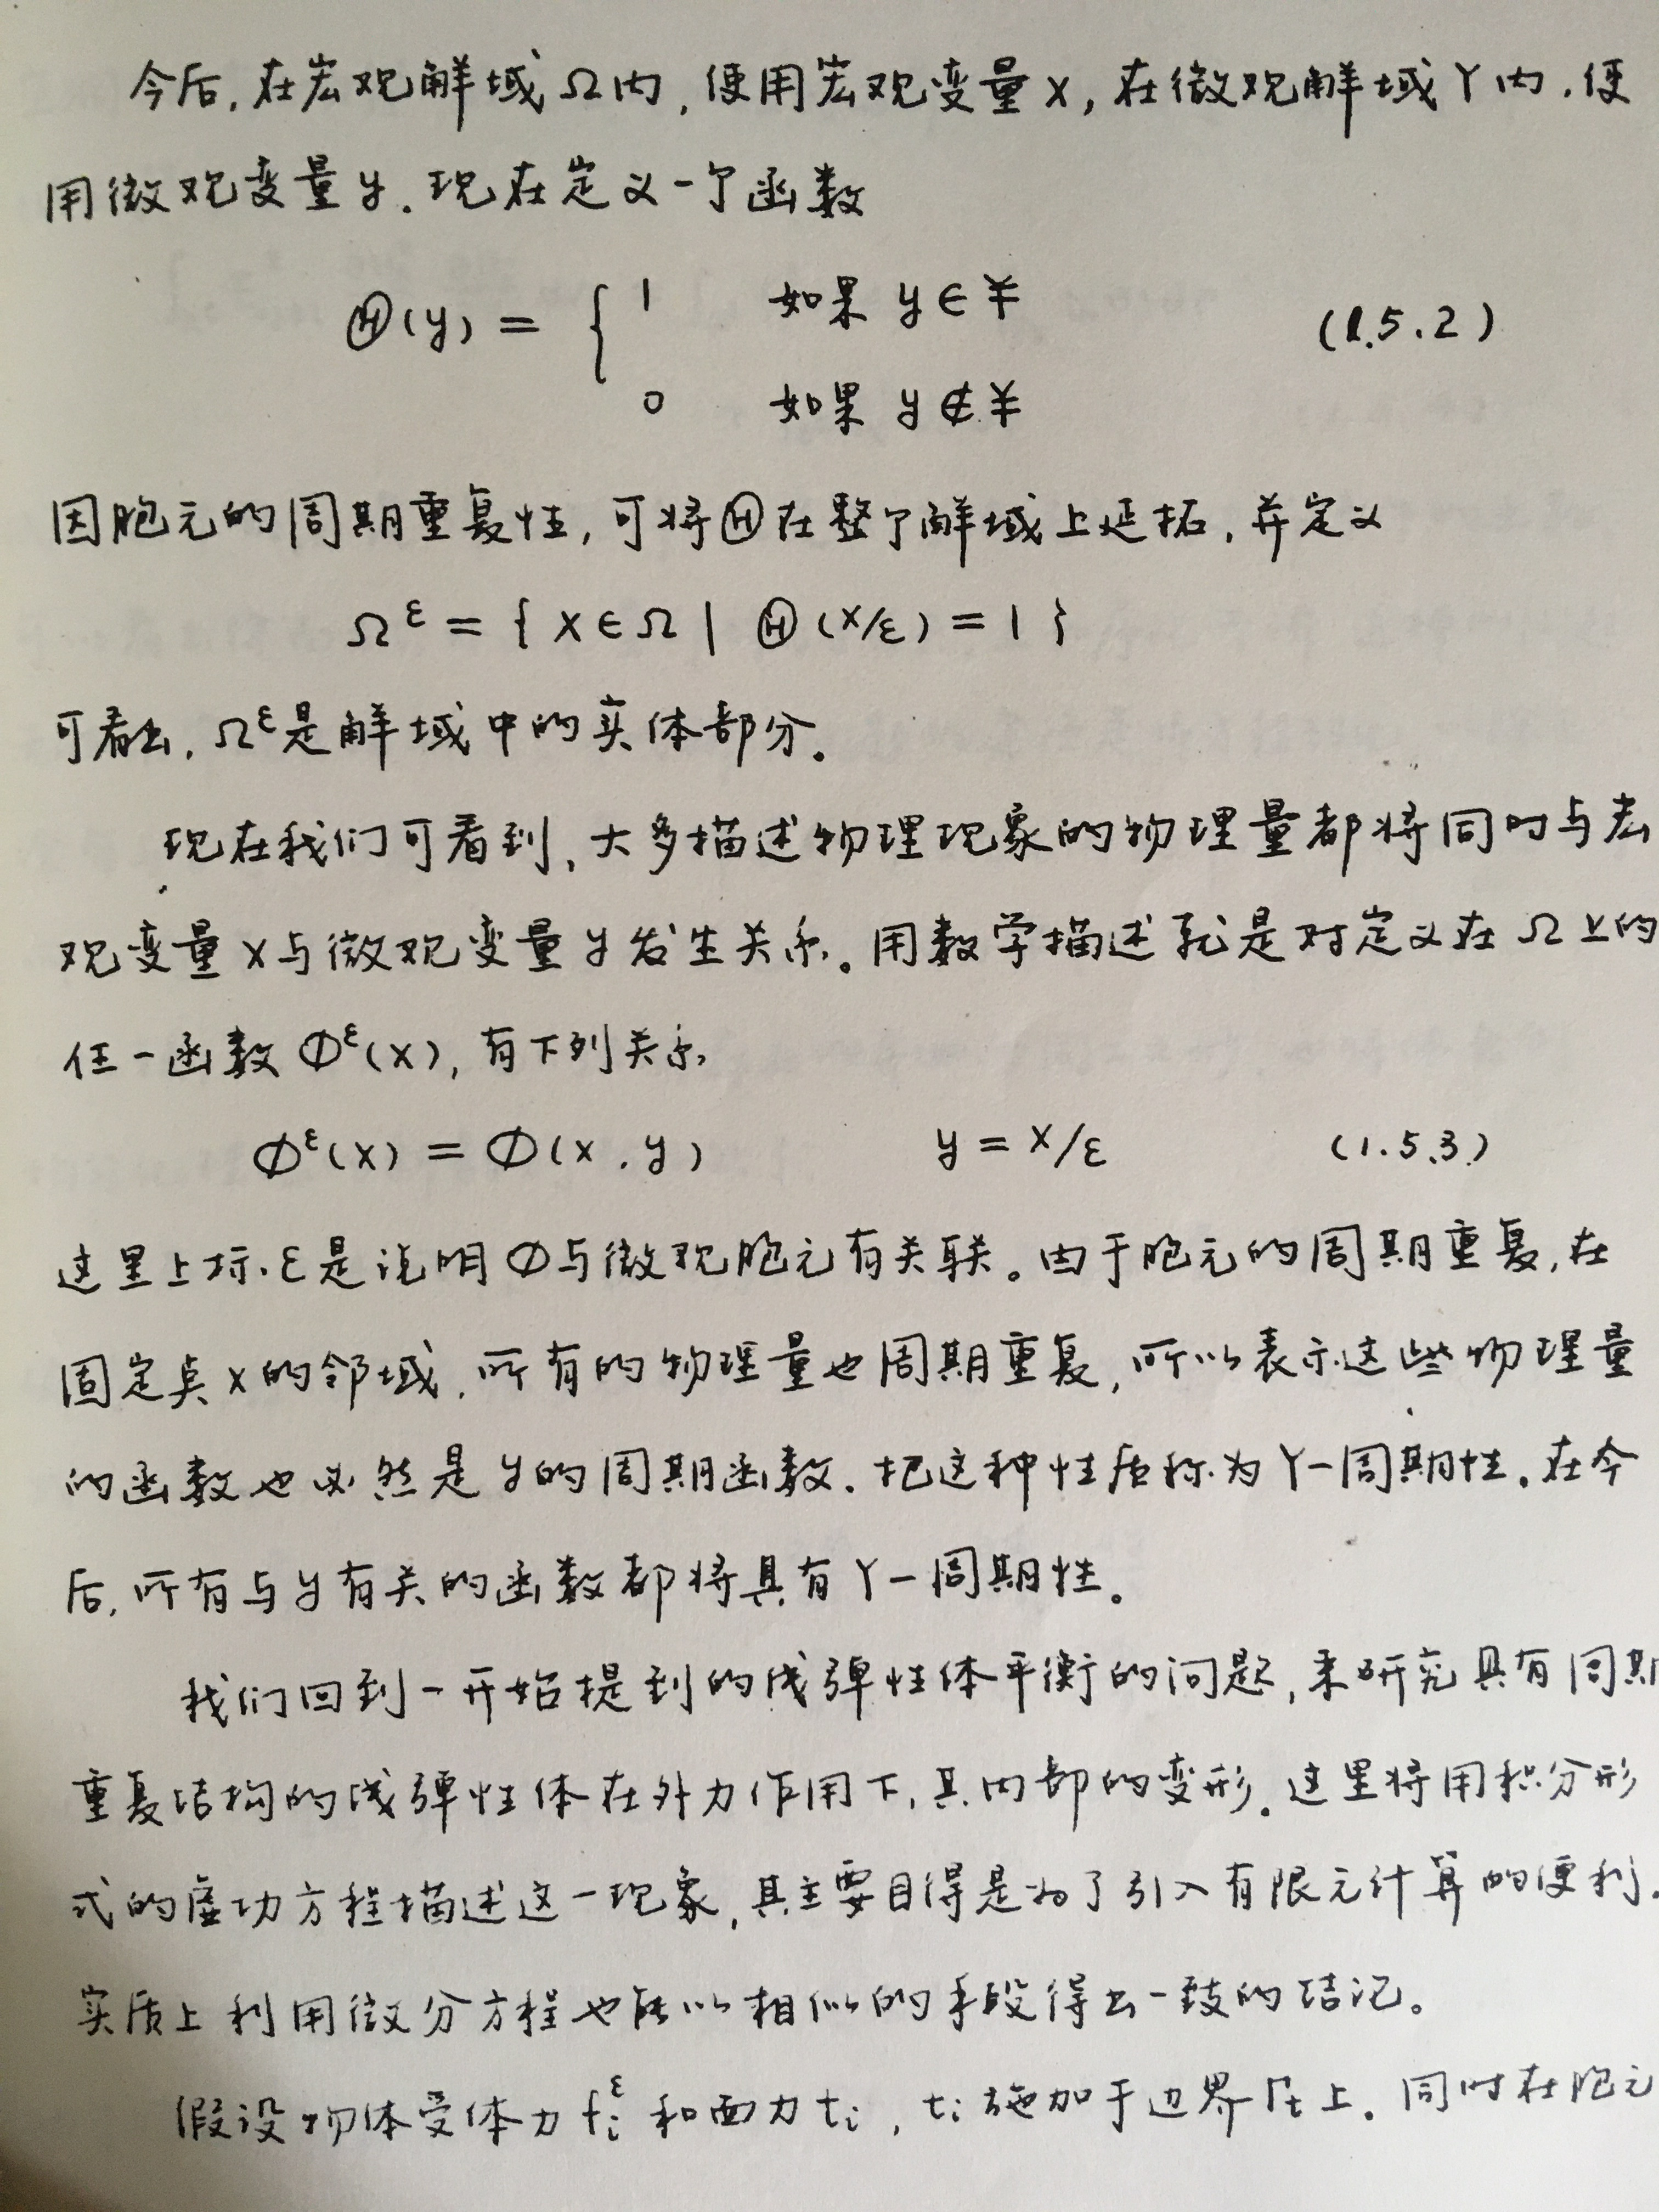 今后,在宏观解域Ω内,使用宏观变量x,在微观解域Y内,使
用微观变量y.现在定义一个函数
Ⓗ(y) = { 1 如果 y∈¥ (1.5.2)
0 如果 y∉¥
因胞元的周期重复性,可将Ⓗ在整个解域上延拓,并定义
Ω^ε = { x∈Ω | Ⓗ(x/ε) = 1 }
可看出,Ω^ε是解域中的实体部分。
现在我们可看到,大多描述物理现象的物理量都将同时与宏
观变量x与微观变量y发生关系。用数学描述就是对定义在Ω上的
任一函数Φ^ε(x),有下列关系
Φ^ε(x) = Φ(x,y) y = x/ε (1.5.3)
这里上标ε是说明Φ与微观胞元有关联。由于胞元的周期重复,在
固定点x的邻域,所有的物理量也周期重复,所以表示这些物理量
的函数也必然是y的周期函数.把这种性质称为Y-周期性.在今
后,所有与y有关的函数都将具有Y-周期性。
我们回到一开始提到的线弹性体平衡的问题,来研究具有周期
重复结构的线弹性体在外力作用下,其内部的变形.这里将用积分形
式的虚功方程描述这一现象,其主要目得是为了引入有限元计算的便利.
实质上利用微分方程也能以相似的手段得出一致的结论。
假设物体受体力f_i^ε和面力t_i,t_i施加于边界Γ_t上.同时在胞元